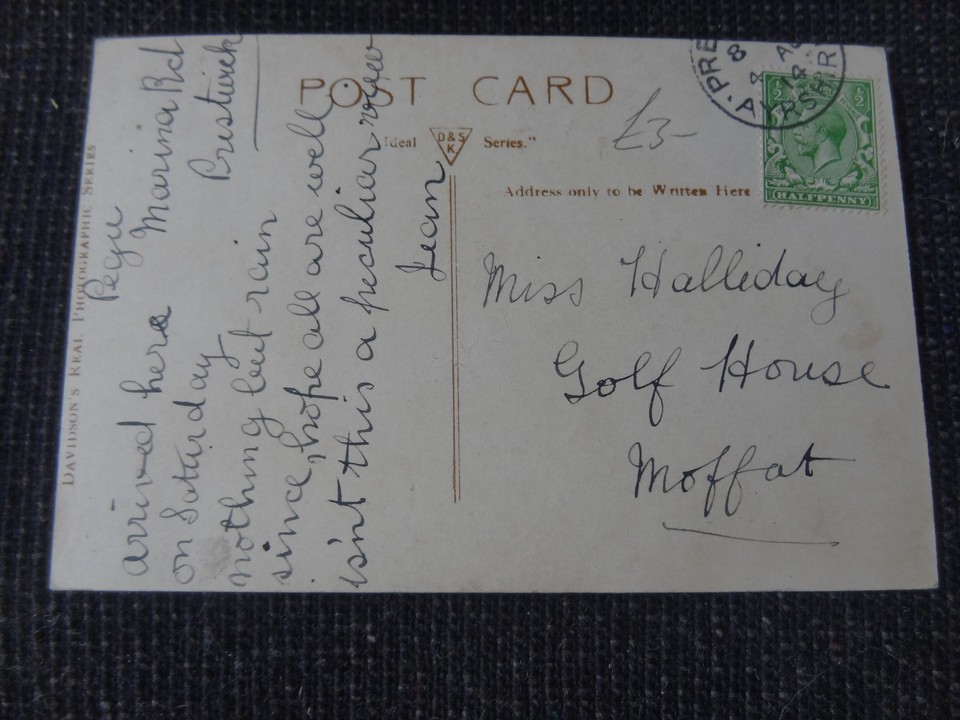 POST CARD
"Ideal D & S K Series."
Address only to be Written Here
£3-
PRE
8
8 AU
18
AYRSHIR
½ ½
HALFPENNY
DAVIDSON'S REAL PHOTOGRAPHIC SERIES
Marina Rd
Prestwick
arrived here
on Saturday
nothing but rain
since, hope all are well,
isn't this a peculiar view
Jean
Miss Halliday
Golf House
Moffat